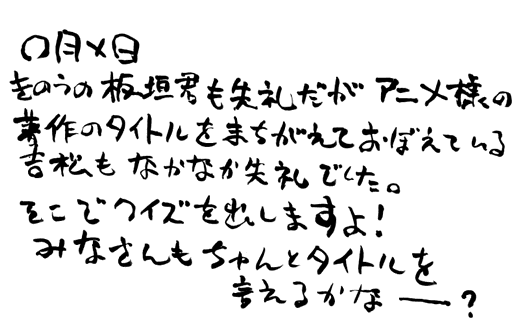 〇月×日
きのうの板垣君も失礼だが アニメ様の
著作のタイトルをまちがえておぼえている
吉松も なかなか失礼でした。
そこでクイズを出しますよ!
みなさんも ちゃんとタイトルを
言えるかなー?